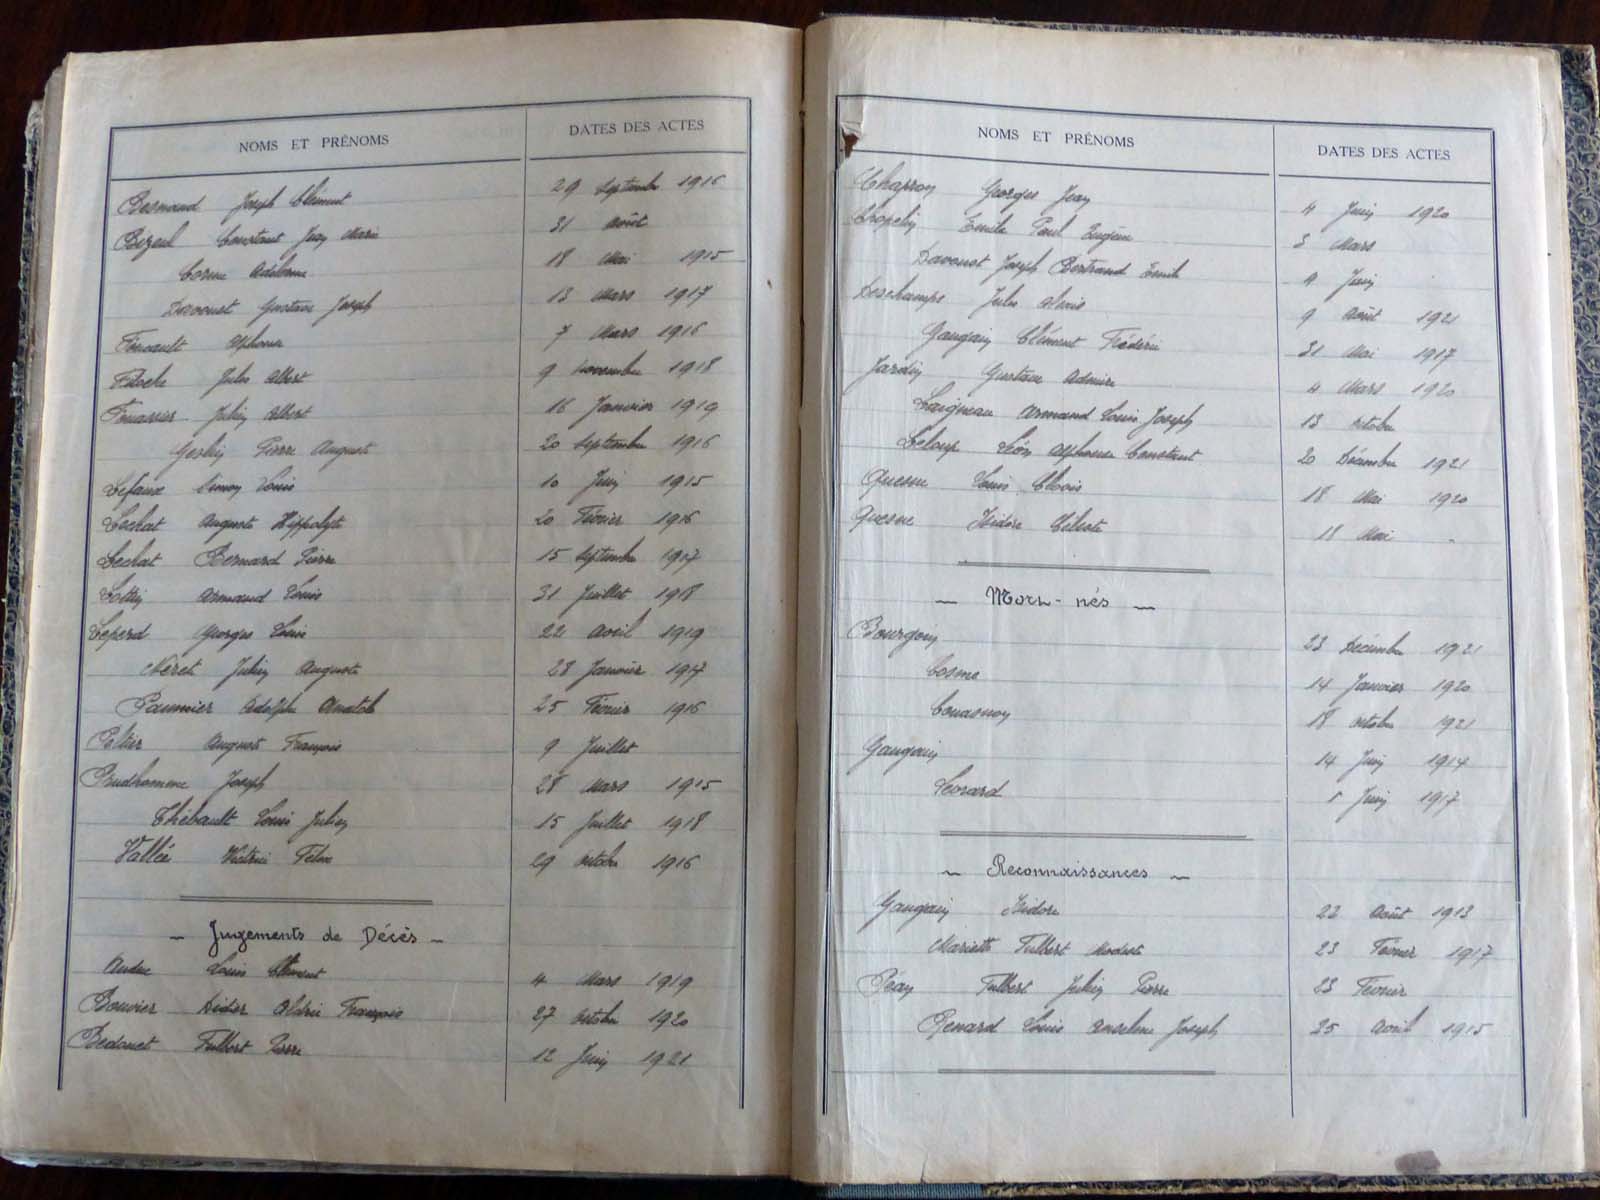 NOMS ET PRÉNOMS DATES DES ACTES
Besnard Joseph Clément 29 Septembre 1916
Bizeul Constant Jean Marie 31 Août
Corme 18 Mai 1915
Davouet Gustave Joseph 13 Mars 1917
Foucault Alphonse 7 Mars 1916
Filoche Jules Albert 9 Novembre 1918
Fourrier Julien Albert 16 Janvier 1919
Geslin Pierre Auguste 20 Septembre 1916
Lefaux Simon Louis 10 Juin 1915
Lechat Auguste Hippolyte 20 Février 1916
Lechat Bernard Pierre 15 Septembre 1917
Lottin Armand Louis 31 Juillet 1918
Leperd Georges Louis 22 Avril 1919
Néret Julien Auguste 28 Janvier 1917
Paumier Adolphe Anatole 25 Février 1916
Peltier Auguste François 9 Juillet
Prudhomme Joseph 28 Mars 1915
Thébault Louis Julien 15 Juillet 1918
Vallée 29 Octobre 1916
- Jugements de Décès -
Louis Clément 4 Mars 1919
Bouvier Didier François 27 Octobre 1920
Bedouet Fulbert Pierre 12 Juin 1921
NOMS ET PRÉNOMS DATES DES ACTES
Charron Georges Jean 4 Juin 1920
Cropelin Emile Paul Eugène 3 Mars
Davouet Joseph Bertrand Emile 9 Juin
Deschamps Jules 9 Août 1921
Gaugain Clément Frédéric 31 Mai 1917
Jardin Gustave 4 Mars 1920
Laigneau Armand Louis Joseph 13 Octobre
Leloup Léon Alphonse Constant 20 Décembre 1921
Quesne Louis Clovis 18 Mai 1920
Quesne Isidore Céleste 18 Mai -
- Mort-nés -
Bourgoin 23 Décembre 1921
Cosme 14 Janvier 1920
Couasnoy 18 Octobre 1921
Gaugain 14 Juin 1914
Leorard 1 Juin 1917
- Reconnaissances -
Gaugain Isidore 22 Août 1913
Mariette Fulbert Modeste 23 Février 1917
Péan Fulbert Julien Pierre 23 Février
Renard Louis Anselme Joseph 25 Avril 1915